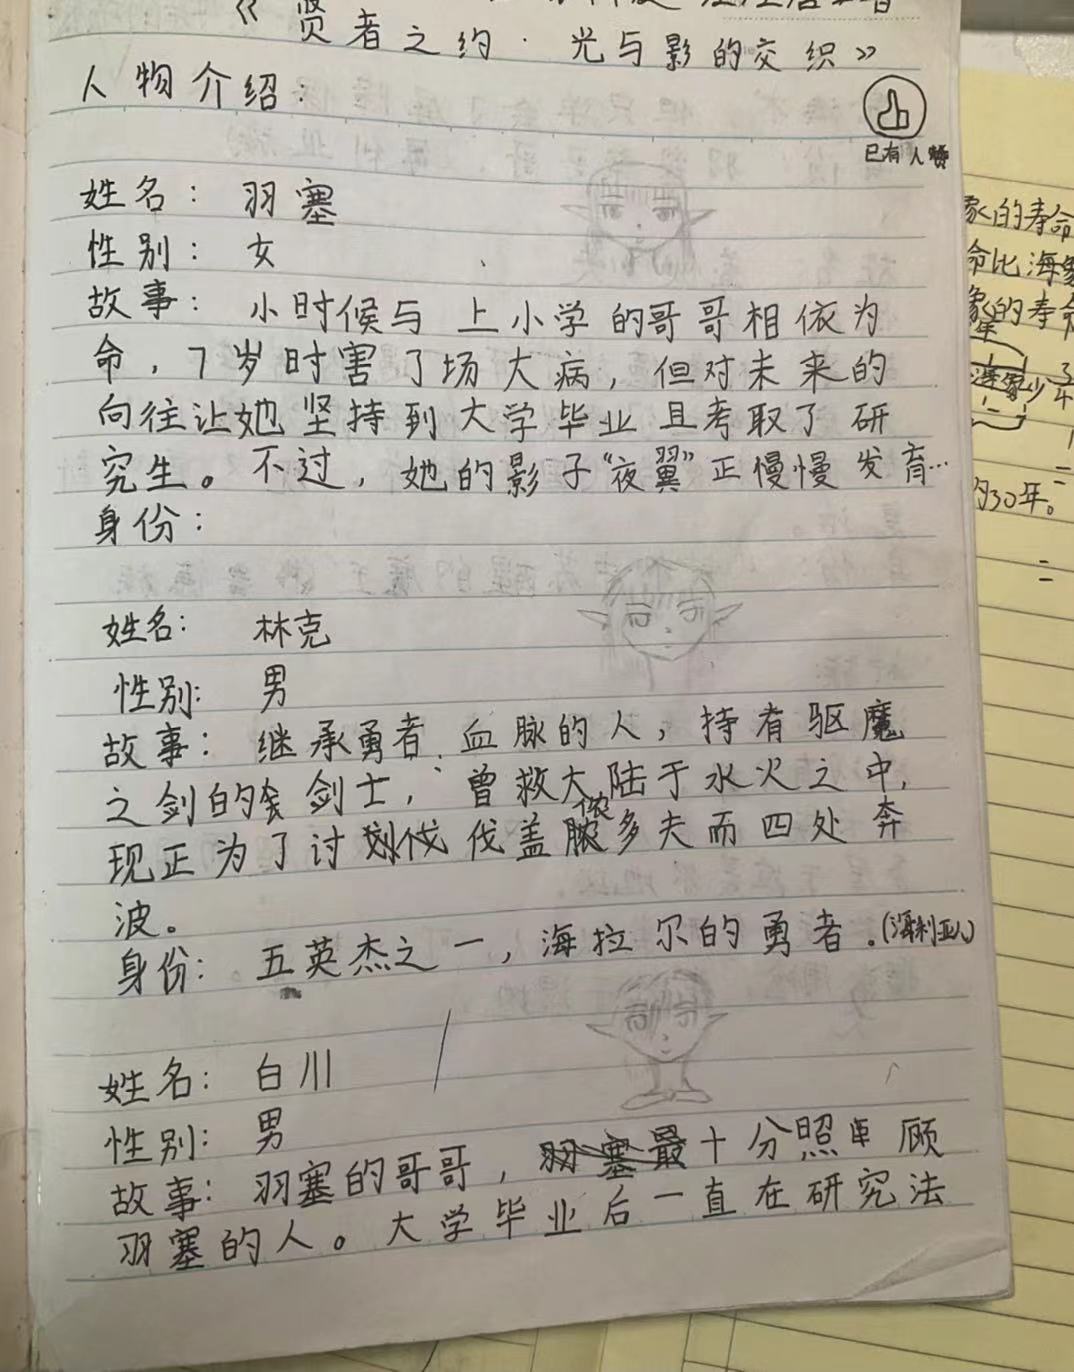 《贤者之约·光与影的交织》
人物介绍:
已有人赞
姓名: 羽塞
性别: 女
故事: 小时候与上小学的哥哥相依为
命,7岁时害了场大病,但对未来的
向往让她坚持到大学毕业且考取了研
究生。不过,她的影子“夜翼”正慢慢发育…
身份:
姓名: 林克
性别: 男
故事: 继承勇者血脉的人,持有驱魔
之剑的剑士,曾救大陆于水火之中,
现正为了讨伐盖侬多夫而四处奔
波。
身份: 五英杰之一,海拉尔的勇者。(海利亚人)
姓名: 白川
性别: 男
故事: 羽塞的哥哥,十分照顾
羽塞的人。大学毕业后一直在研究法
象的寿命
命比海象
象的寿命
的30年。